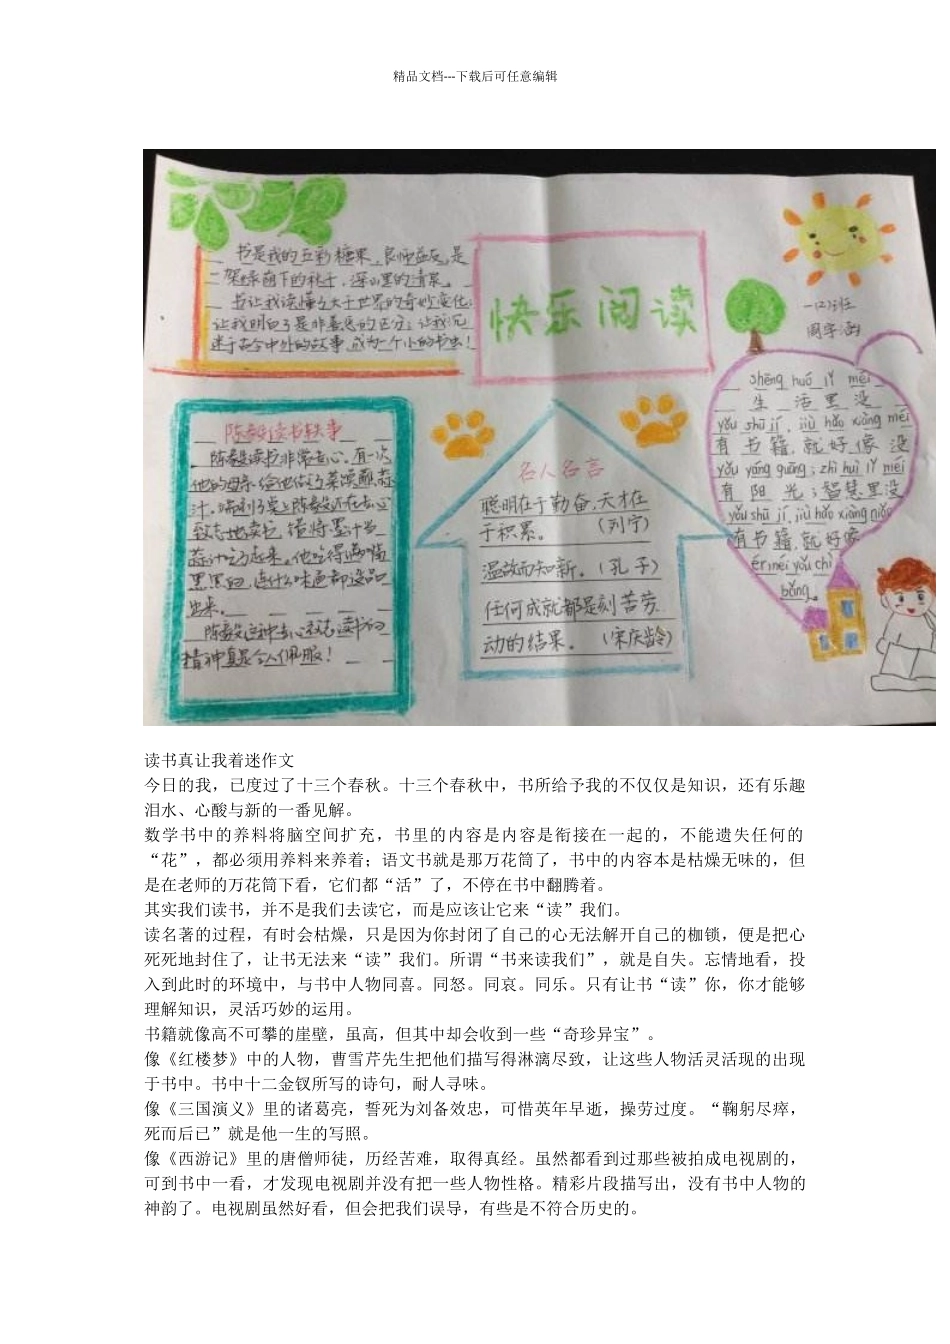 精品文档---下载后可任意编辑
书是我的五彩糖果,良师益友,是
一架绿荫下的秋千,深山里的清泉。
书让我读懂了大千世界的奇妙变化;
让我明白了是非善恶的区分;让我沉
迷于古今中外的故事,成为一个小的书虫!
快乐阅读
一(2)班
周宇涵
陈毅读书轶事
陈毅读书非常专心。有一次
他的母亲给他做了菜馍蘸蒜
汁,端到了桌上陈毅还在专心
致志地读书,错将墨汁当
蒜汁吃了起来。他吃得满嘴
黑黑的,连什么味道都没品
出来。
陈毅这种专心致志读书的
精神真是令人佩服!
名人名言
聪明在于勤奋,天才在
于积累。 (列宁)
温故而知新。(孔子)
任何成就都是刻苦劳
动的结果。 (宋庆龄)
shēng huó lǐ méi
生 活 里 没
yǒu shū jí, jiù hǎo xiàng méi
有 书 籍,就 好 像 没
yǒu yáng guāng; zhì huì lǐ méi
有 阳 光;智慧里没
yǒu shū jí, jiù hǎo xiàng niǎo
有书籍,就好像
ér méi yǒu chì
bǎng。
读书真让我着迷作文
今日的我,已度过了十三个春秋。十三个春秋中,书所给予我的不仅仅是知识,还有乐趣
泪水、心酸与新的一番见解。
数学书中的养料将脑空间扩充,书里的内容是内容是衔接在一起的,不能遗失任何的
“花”,都必须用养料来养着;语文书就是那万花筒了,书中的内容本是枯燥无味的,但
是在老师的万花筒下看,它们都“活”了,不停在书中翻腾着。
其实我们读书,并不是我们去读它,而是应该让它来“读”我们。
读名著的过程,有时会枯燥,只是因为你封闭了自己的心无法解开自己的枷锁,便是把心
死死地封住了,让书无法来“读”我们。所谓“书来读我们”,就是自失。忘情地看,投
入到此时的环境中,与书中人物同喜。同怒。同哀。同乐。只有让书“读”你,你才能够
理解知识,灵活巧妙的运用。
书籍就像高不可攀的崖壁,虽高,但其中却会收到一些“奇珍异宝”。
像《红楼梦》中的人物,曹雪芹先生把他们描写得淋漓尽致,让这些人物活灵活现的出现
于书中。书中十二金钗所写的诗句,耐人寻味。
像《三国演义》里的诸葛亮,誓死为刘备效忠,可惜英年早逝,操劳过度。“鞠躬尽瘁,
死而后已”就是他一生的写照。
像《西游记》里的唐僧师徒,历经苦难,取得真经。虽然都看到过那些被拍成电视剧的,
可到书中一看,才发现电视剧并没有把一些人物性格。精彩片段描写出,没有书中人物的
神韵了。电视剧虽然好看,但会把我们误导,有些是不符合历史的。